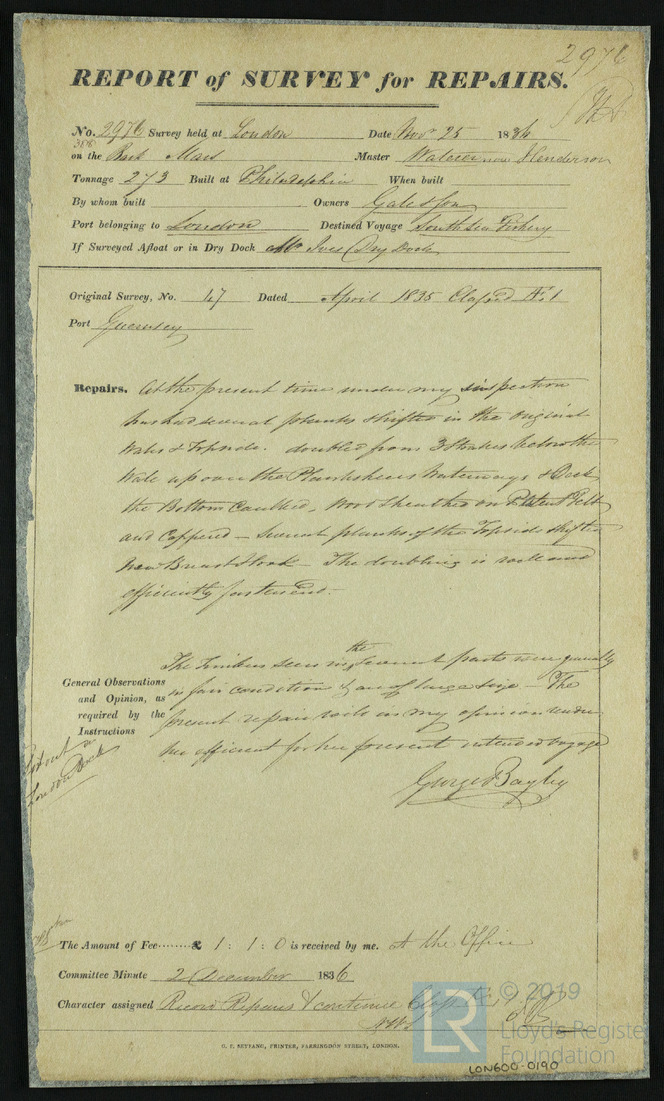 2976
REPORT of SURVEY for REPAIRS.
No. 2976 Survey held at London Date Novr 25 1836
on the Bark Mars Master Waterer now Henderson
Tonnage 273 Built at Philadelphia When built
By whom built Owners Gale & Son
Port belonging to London Destined Voyage South Sea Fishery
If Surveyed Afloat or in Dry Dock Mr Ives Dry Dock
Original Survey, No. 47 Dated April 1835 Classed Æ 1
Port Guernsey
Repairs. At the present time under my inspection
has had several planks shifted in the original
Wales & Topside. doubled from 3 Strakes below the
Wale up over the Plankshears Waterways & Deck
the Bottom Caulked, Wood Sheathed on Patent Felt
and Coppered - Several planks of the Topside shifted
New Breast Hook - The doubling is well and
efficiently fastened.-
General Observations and Opinion, as required by the Instructions
The Timbers seen in the several parts were generally
in fair condition & are of large size - The
present repair will in my opinion render
her efficient for her present intended voyage
George Bayley
London Dock
The Amount of Fee........£ 1 : 1 : 0 is received by me. At the Office
Committee Minute 2 December 1836
Character assigned Record Repairs & continue Class
C. F. SEYFANG, PRINTER, FARRINGDON STREET, LONDON.
LR © 2019
Lloyd's Register
Foundation
LON600-0190